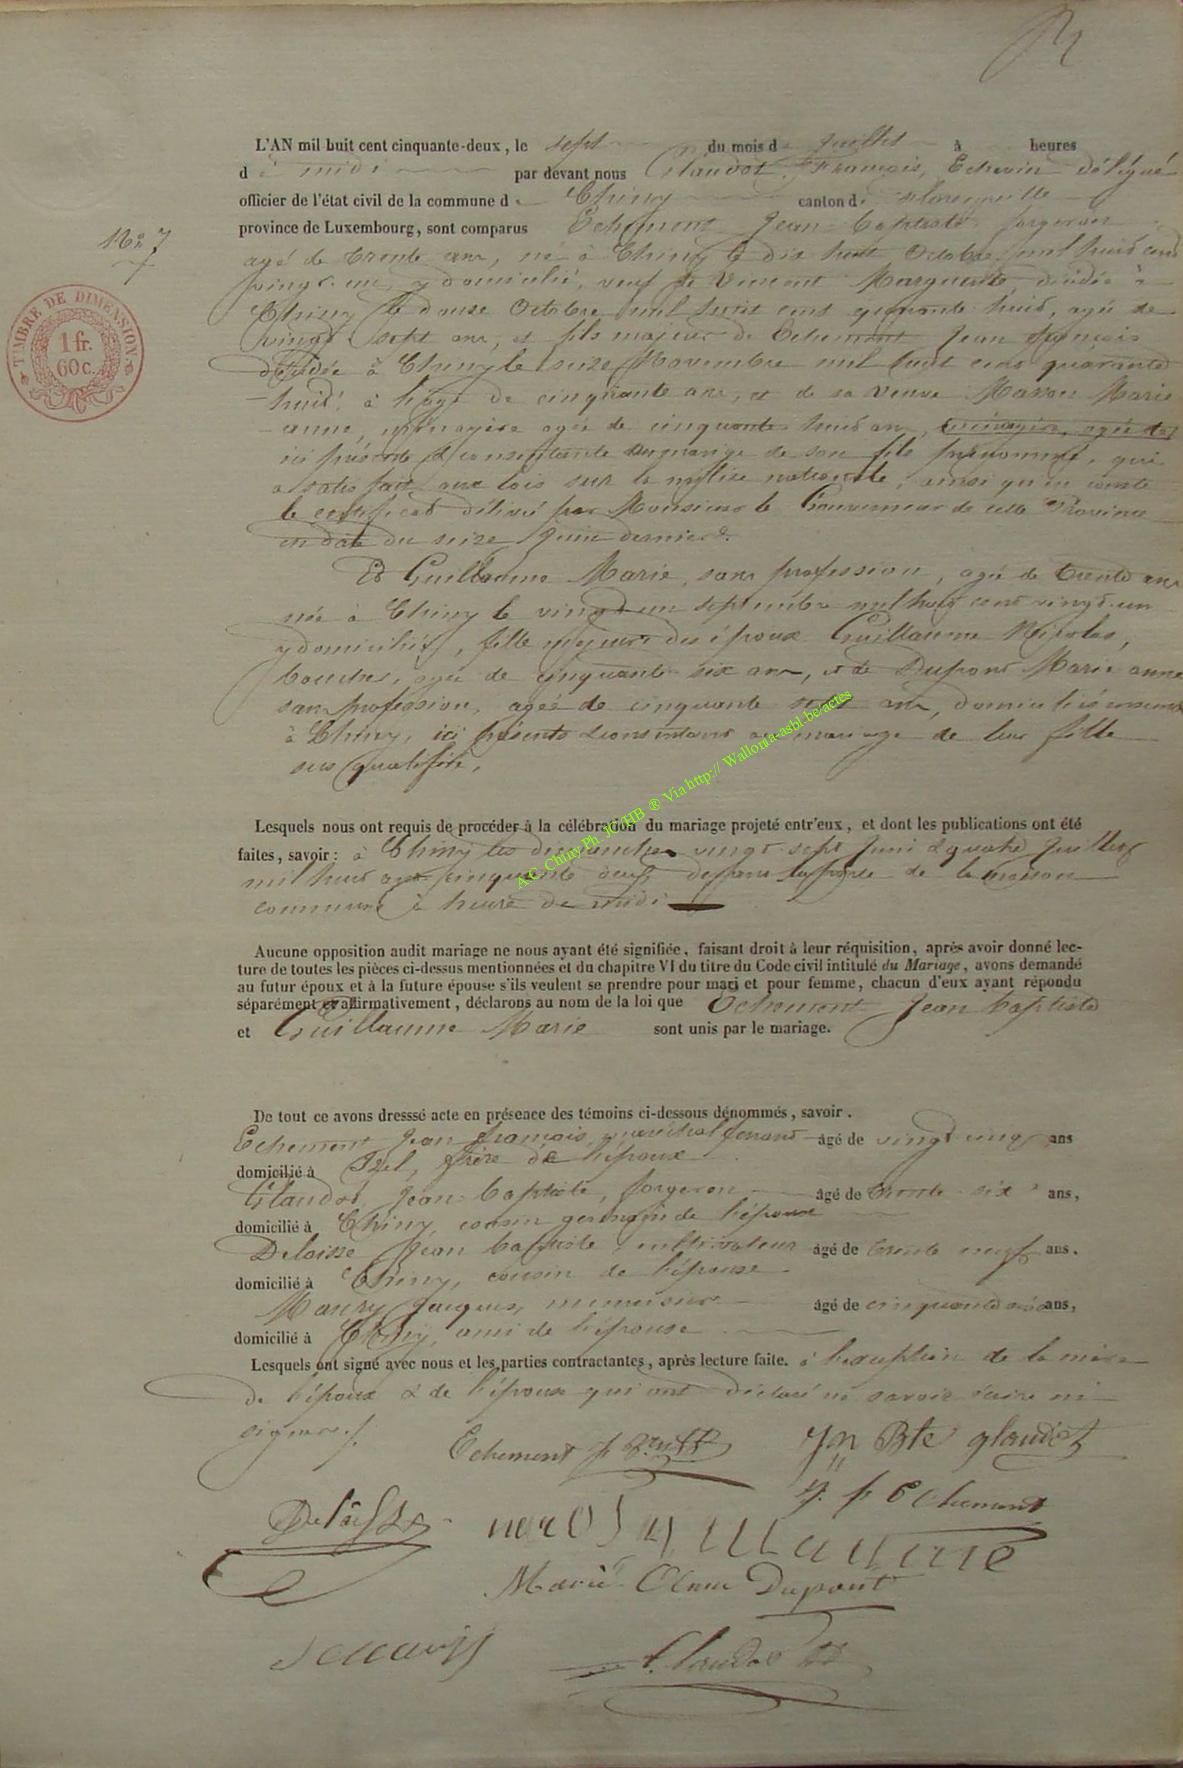 L'AN mil huit cent cinquante-deux, le sept du mois de juillet à heures
de midi par devant nous Claudot François, Echevin délégué
officier de l'état civil de la commune de Chiny canton de Florenville
N° 7
province de Luxembourg, sont comparus Echement Jean baptiste forgeron
agé de trente ans, né à Chiny le dix huit Octobre mil huit cent
vingt-un, y domicilié, veuf de Vincent Marguerite, décédée à
TIMBRE DE DIMENSION
1 fr.
60 c.
Chiny le douze Octobre mil huit cent quarante huit, agée de
vingt sept ans, et fils majeur de Echement Jean françois
décédé à Chiny le seize Novembre mil huit cent quarante
huit, à l'age de cinquante ans, et de sa veuve Masson Marie
anne, ménagère agée de cinquante huit ans, ménagère, agée de
ici présente & consentante au mariage de son fils prénommé, qui
a satisfait aux lois sur la milice nationale, ainsi qu'il conste
le certificat délivré par Monsieur le Gouverneur de cette Province
en date du seize Juin dernier.
Et Guillaume Marie, sans profession, agée de trente ans
née à Chiny le vingt un septembre mil huit cent vingt-un
y domiciliée, fille majeure des époux Guillaume Nicolas,
agé de cinquante six ans, et de Dupont Marie anne
sans profession, agée de cinquante sept ans, domiciliés ensemble
à Chiny, ici présents & consentants au mariage de leur fille
sus qualifiée.
Lesquels nous ont requis de procéder à la célébration du mariage projeté entr'eux, et dont les publications ont été
faites, savoir: à Chiny les dimanches vingt sept juin & quatre Juillet
mil huit cent cinquante deux devant la porte de la maison
commune à heure de midi
Aucune opposition audit mariage ne nous ayant été signifiée, faisant droit à leur réquisition, après avoir donné lec-
ture de toutes les pièces ci-dessus mentionnées et du chapitre VI du titre du Code civil intitulé du Mariage, avons demandé
au futur époux et à la future épouse s'ils veulent se prendre pour mari et pour femme, chacun d'eux ayant répondu
séparément et affirmativement, déclarons au nom de la loi que Echement Jean baptiste
et Guillaume Marie sont unis par le mariage.
De tout ce avons dresssé acte en présence des témoins ci-dessous dénommés, savoir.
Echement Jean françois, maréchal ferrant âgé de vingt cinq ans
domicilié à Izel, frère de l'époux
Glaudot Jean baptiste, forgeron âgé de trente-six ans,
domicilié à Chiny, cousin germain de l'époux
Delaisse Jean baptiste, cultivateur âgé de trente neuf ans.
domicilié à Chiny, cousin de l'épouse.
Jacques, menuisier âgé de cinquante ans,
domicilié à Chiny, ami de l'épouse
Lesquels ont signé avec nous et les parties contractantes, après lecture faite. à l'exception de la mère
de l'époux & de l'épouse qui ont déclaré ne savoir écrire ni
signer./.
Echement Jn Bte glaudot
j. f Echement
Delaisse
guillaume
Marie Anne Dupont
Claudot
A.C. Chiny Ph JC/HB ® Via http:// Wallonia-asbl.be/actes